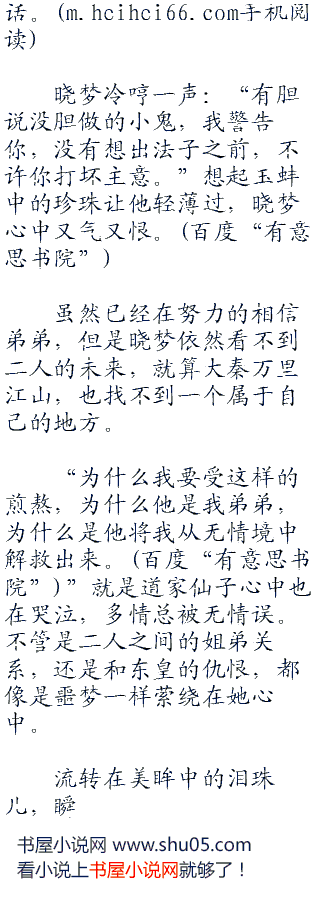 话。(m.hcihci66.com手机阅
读)
晓梦冷哼一声：“有胆
说没胆做的小鬼，我警告
你，没有想出法子之前，不
许你打坏主意。”想起玉蚌
中的珍珠让他轻薄过，晓梦
心中又气又恨。(百度“有意
思书院”)
虽然已经在努力的相信
弟弟，但是晓梦依然看不到
二人的未来，就算大秦万里
江山，也找不到一个属于自
己的地方。
“为什么我要受这样的
煎熬，为什么他是我弟弟，
为什么是他将我从无情境中
解救出来。(百度“有意思书
院”)”就是道家仙子心中也
在哭泣，多情总被无情误。
不管是二人之间的姐弟关
系，还是和东皇的仇恨，都
像是噩梦一样萦绕在她心
中。
流转在美眸中的泪珠
儿，瞬
书屋小说网 www.shu05.com
看小说上书屋小说网就够了！